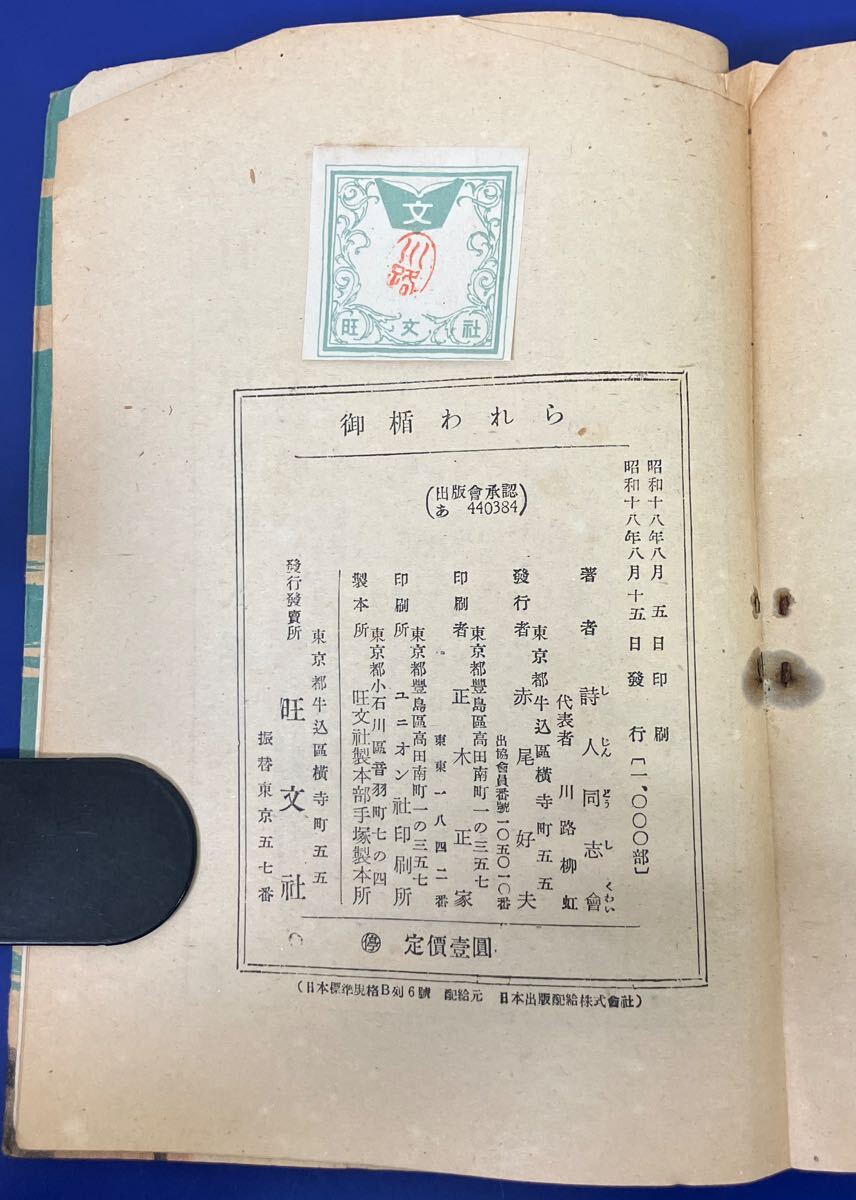 文
川路
旺文社
御楯われら
(出版會承認
あ 440384)
昭和十八年八月 五 日印 刷
昭和十八年八月十五日發 行〔一、〇〇〇部〕
著者 詩人同志會
しじんどうしくわい
代表者 川路柳虹
東京都牛込區横寺町五五
發行者 赤尾好夫
出協會員番號一〇五〇一〇番
東京都豐島區高田南町一の三五七
印刷者 正木正家
東東一八四二番
東京都豐島區高田南町一の三五七
印刷所 ユニオン社印刷所
東京都小石川區音羽町七の四
製本所 旺文社製本部手塚製本所
東京都牛込區横寺町五五
發行發賣所 旺文社
振替東京五七番
㊡ 定價壹圓
(日本標準規格B列6號 配給元 日本出版配給株式會社)